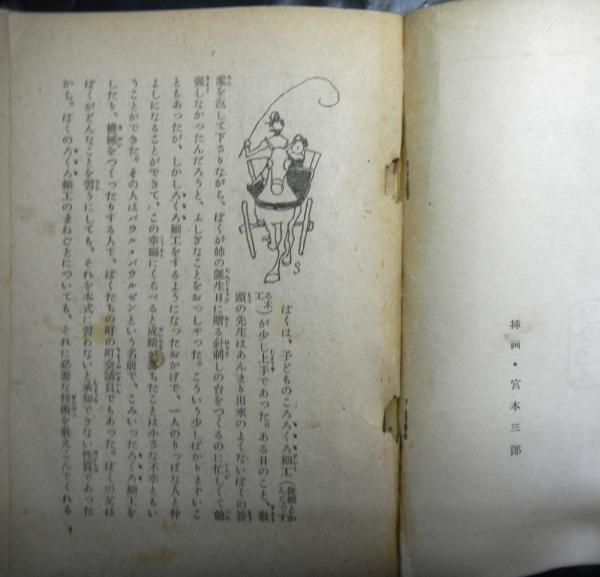 挿画・宮本三郎
ぼくは、子どものころろくろ細工(挽物とか
る木工)が少し上手であった。ある日のこと、教
頭の先生はあんまり出来のよくないぼくの答
案を返して下さりながら、ぼくが姉の誕生日に贈る針刺しの台をつくるのに忙しくて勉
強しなかったんだろうと、ふしぎなことをおっしゃった。こういう少しばかりまずいこ
ともあったが、しかしろくろ細工をするようになったおかげで、一人のりっぱな人と仲
よしになることができて、この幸福にくらべると成績が落ちたことは小さな不幸ともい
うことができた。その人はパウル・パウルゼンという名前で、こみいったろくろ細工を
したり、機械をつくったりする人で、ぼくたちの町の町会議員でもあった。ぼくの父は
ぼくがどんなことを習うにしても、それを本式に習わないと承知できない性質であった
から、ぼくのろくろ細工のまねごとについても、それに必要な技術を教えこんでくれる
1
S